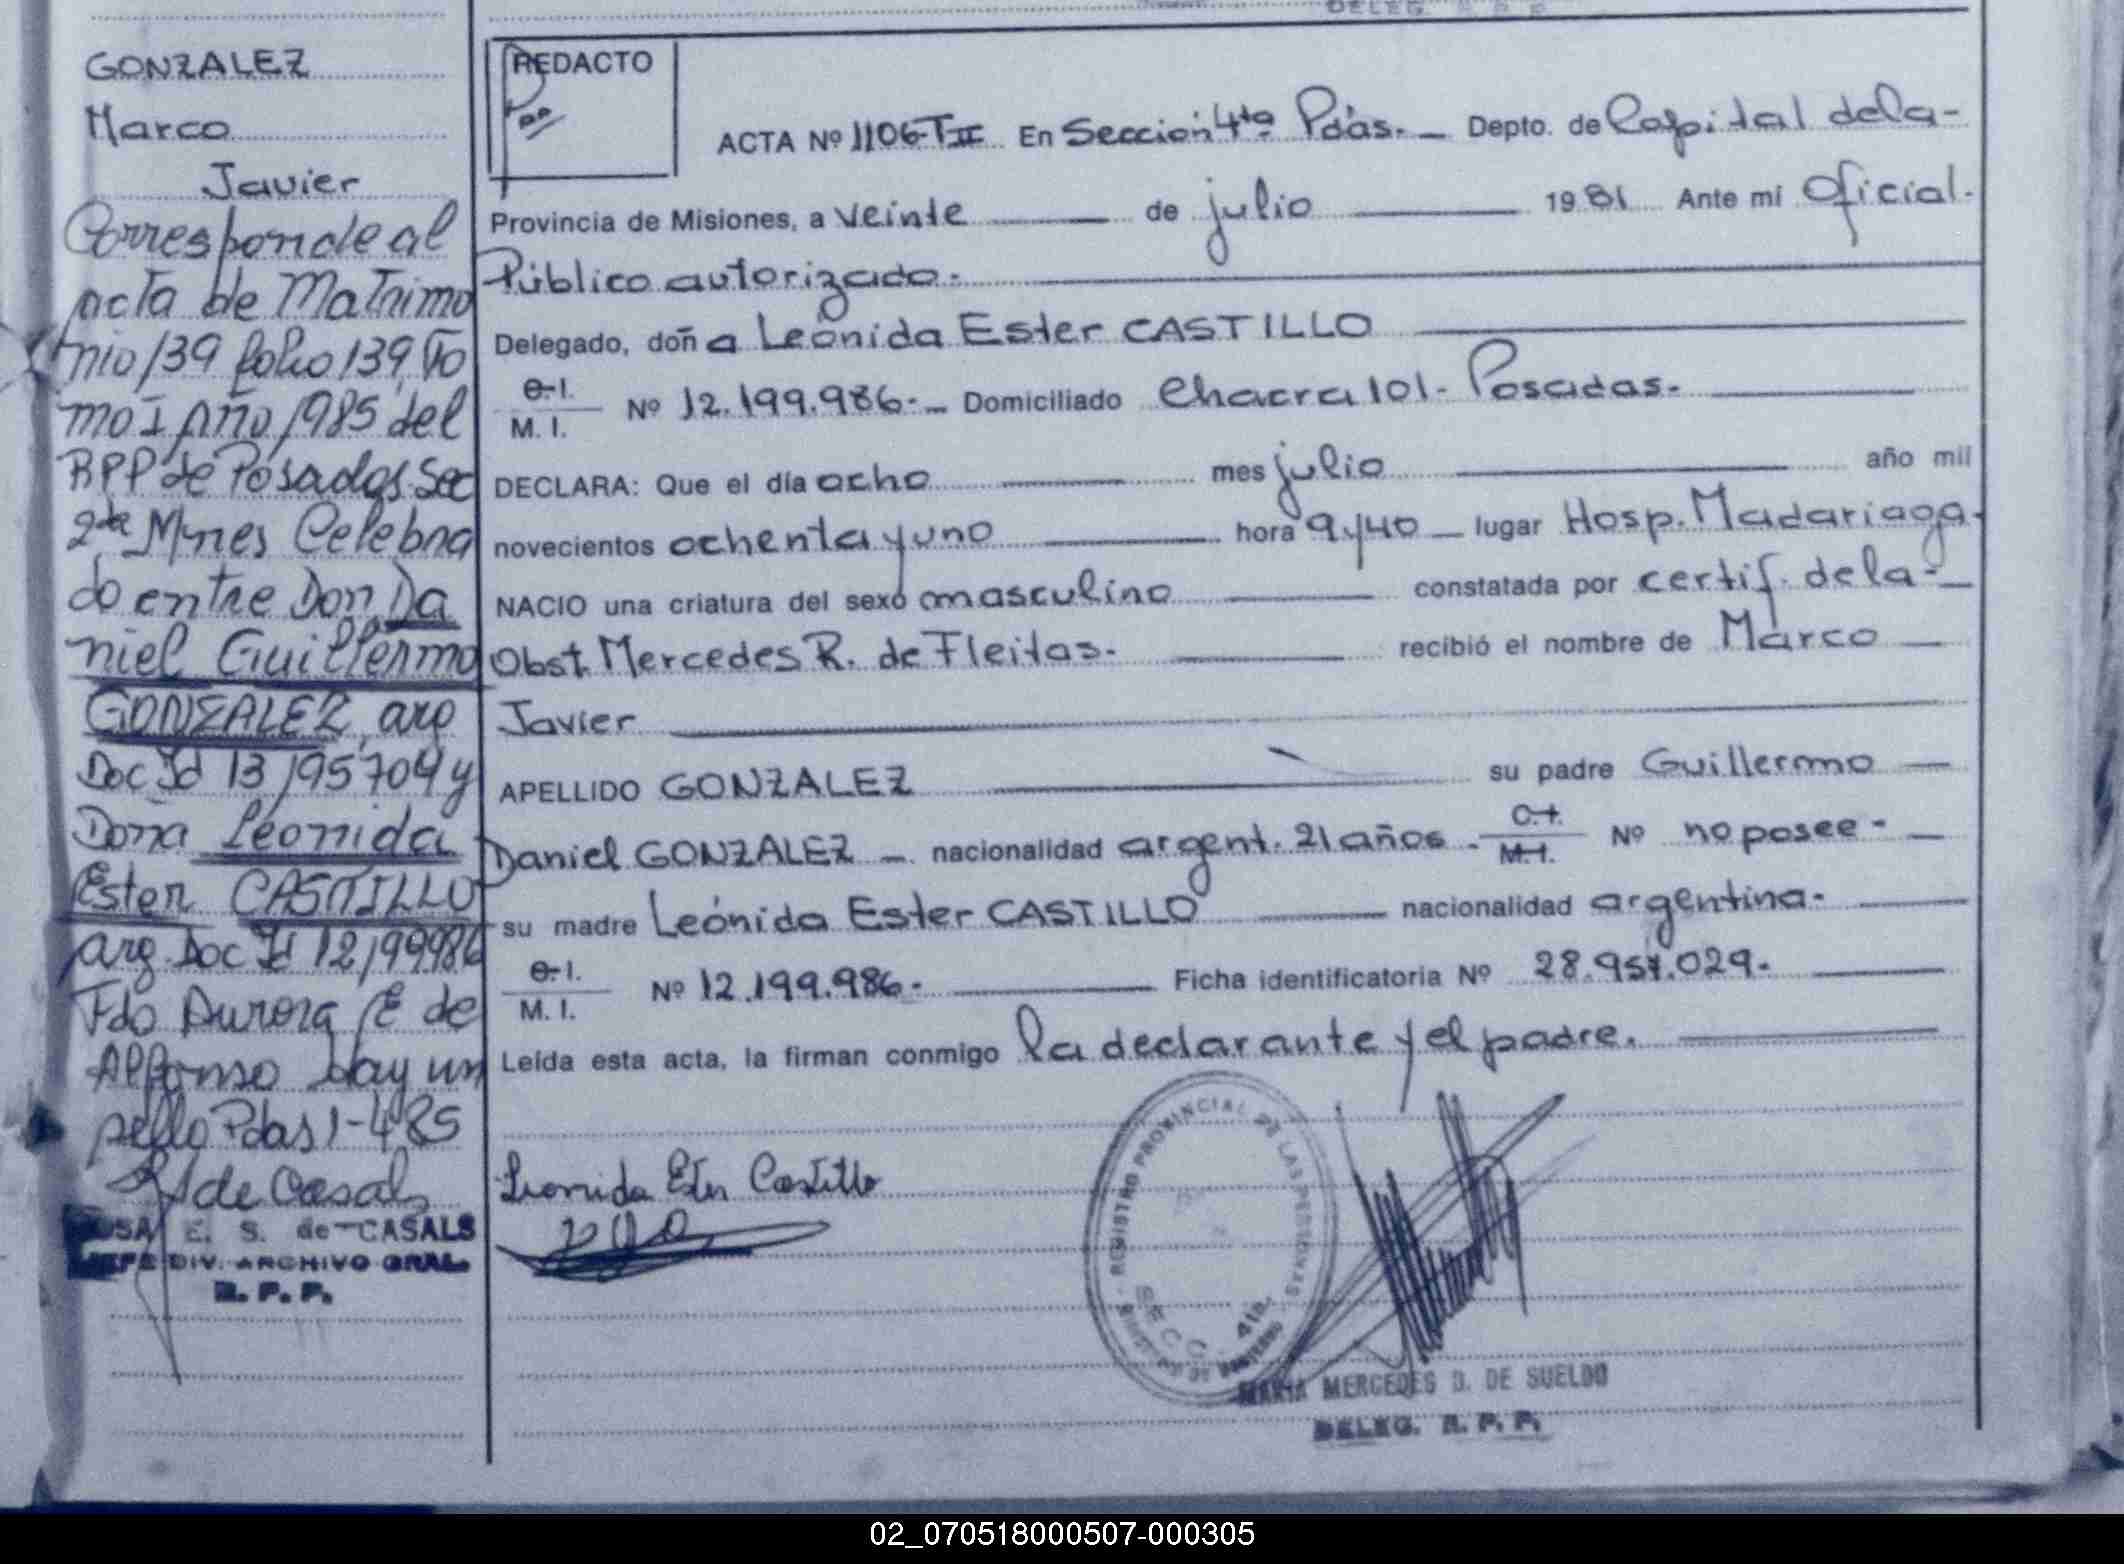 GONZALEZ
Marco
Javier
Corresponde al
acta de Matrimo
nio 139 folio 139 To
mo I Año 1985 del
RPP de Posadas Sec
2da Mnes Celebra
do entre Don Da
niel Guillermo
GONZALEZ, arg
Doc Id 13195704 y
Doña Leonida
Ester CASTILLO
arg. Doc Id 12199986
Fdo Aurora E de
Alfonso Hay un
sello Pdas 1-4-85
de Casals
E. S. de CASALS
JEFE DIV. ARCHIVO GRAL.
R. P. P.
REDACTO
ACTA Nº 1106-TII En Sección 4ta Pdas. - Depto. de Capital de la -
Provincia de Misiones, a veinte de julio 1981 Ante mí Oficial.
Público autorizado.
Delegado, doña Leónida Ester CASTILLO
C. I.
M. I. Nº 12.199.986.- Domiciliado Chacra 101 - Posadas.
DECLARA: Que el día ocho mes julio año mil
novecientos ochenta y uno hora 9 y 40 lugar Hosp. Madariaga.
NACIO una criatura del sexo masculino constatada por certif. de la -
Obst. Mercedes R. de Fleitas. recibió el nombre de Marco
Javier
APELLIDO GONZALEZ su padre Guillermo
Daniel GONZALEZ nacionalidad argent. 21 años - C. I.
M. I. Nº no posee -
su madre Leónida Ester CASTILLO nacionalidad argentina.
C. I.
M. I. Nº 12.199.986. Ficha identificatoria Nº 28.951.029.
Leída esta acta, la firman conmigo la declarante y el padre.
Leonida Ester Castillo
REGISTRO PROVINCIAL DE LAS PERSONAS
SECC. 4ta.
MARIA MERCEDES D. DE SUELDO
DELEG. R. P. P.
02_070518000507-000305